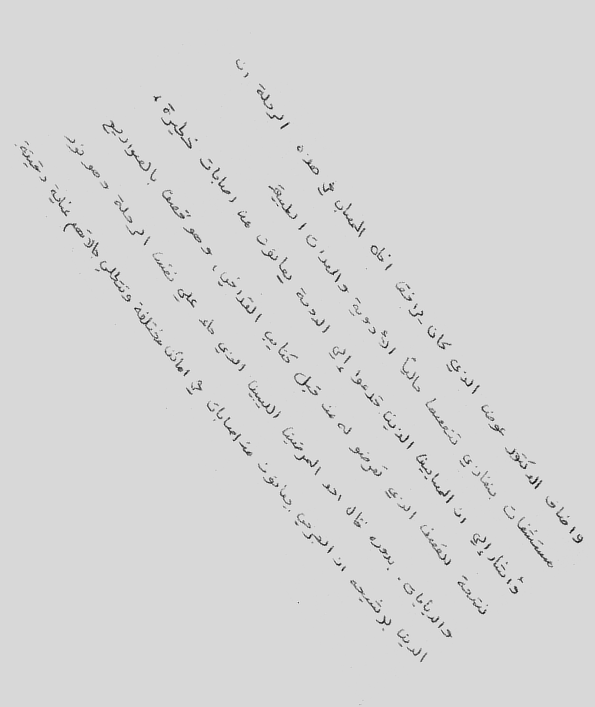 واضاف الدكتور عوض الذي كان يرافق احد المصاب في هذه الرحلة ان
مستشفيات بنغازي تنقصها حالياً الأدوية والمعدات الطبية
وأشار إلي ان المصابين الذين قدموا إلي الدوحة يعانون من اصابات خطيرة ،
نتيجة للقصف الذي تعرضو له من قبل كتايب القذافي ، وهو قصف بالصواريخ
والدبابات . بدوره قال احد الممرضين الليبين الذي جاء علي نفس الرحلة وهو نور
الدين بوشيحه ان الجرحي يعانون من اصابات في اماكن مختلفة وتتطلب حالاتهم عناية دقيقة